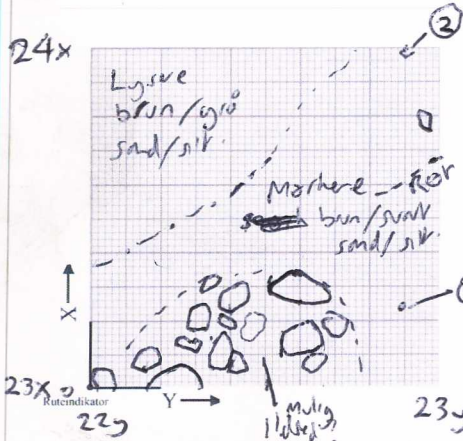 24x
2
Lysere
brun/grå
sand/silt
Mørkere
brun/svart
sand/silt
X
23x
Ruteindikator
Y
22y
23y
Mulig